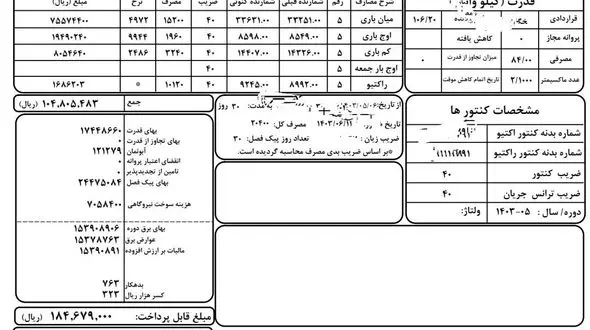 قدرت (کیلو وات)
قراردادی ۱۰۶/۲۰
پروانه مجاز ۰ کاهش یافته
مصرفی ۸۴/۰۰ میزان تجاوز از قدرت
عدد ماکسیمتر ۲/۱۰۰۰ تاریخ اتمام کاهش موقت
شرح مصارف رقم شمارنده قبلی شمارنده کنونی ضریب مصرف نرخ مبلغ (ریال)
میان باری ۵ ۳۳۲۵۱.۰۰ ۳۳۶۳۱.۰۰ ۴۰ ۱۵۲۰۰ ۴۹۷۲ ۷۵۵۷۴۴۰۰
اوج باری ۵ ۸۵۴۹.۰۰ ۸۵۹۸.۰۰ ۴۰ ۱۹۶۰ ۹۹۴۴ ۱۹۴۹۰۲۴۰
کم باری ۵ ۱۴۳۲۶.۰۰ ۱۴۴۰۷.۰۰ ۴۰ ۳۲۴۰ ۲۴۸۶ ۸۰۵۴۶۴۰
اوج بار جمعه ۵ ۴۰
راکتیو ۵ ۸۹۹۲.۰۰ ۹۲۴۵.۰۰ ۴۰ ۱۰۱۲۰ * ۱۶۸۶۲۰۳
جمع ۱۰۴,۸۰۵,۴۸۳ (ریال)
مشخصات کنتور ها
شماره بدنه کنتور اکتیو
شماره بدنه کنتور راکتیو
ضریب کنتور ۴۰
ضریب ترانس جریان ۴۰
دوره/ سال : ۰۵-۱۴۰۳ ولتاژ:
از تاریخ به مدت: ۳۰ روز
تاریخ ۱۴۰۳/۰۶/ مصرف کل: ۲۰۴۰۰
ضریب زیان تعداد روز پیک فصل: ۳۰
*بر اساس ضریب بدی مصرف محاسبه گردیده است.
بهای قدرت ۱۷۴۴۸۶۶۰
بهای تجاوز از قدرت ۰
آبونمان ۱۲۱۲۷۹
انقضای اعتبار پروانه ۰
تامین از تجدیدپذیر ۰
بهای پیک فصل ۲۴۴۷۵۰۸۴
هزینه سوخت نیروگاهی ۷۰۵۸۴۰۰
بهای برق دوره ۱۵۳۹۰۸۹۰۶
عوارض برق ۱۵۳۷۸۷۶۳
مالیات بر ارزش افزوده ۱۵۳۹۰۸۹۱
بدهکار ۷۶۳
کسر هزار ریال ۳۲۳
مبلغ قابل پرداخت: ۱۸۴,۶۷۹,۰۰۰ (ریال)